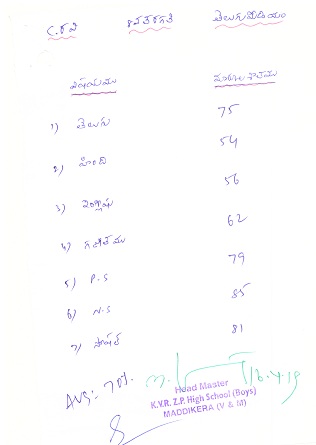 C.రవి 8వతరగతి తెలుగుమీడియం
విషయము మార్కులశాతము
1) తెలుగు 75
2) హింది 54
3) ఇంగ్లీషు 56
4) గణితము 62
5) P.S 79
6) N.S 85
7) సోషల్ 81
AVG: 70%
16.4.19
Head Master
K.V.R. Z.P. High School (Boys)
MADDIKERA (V & M)